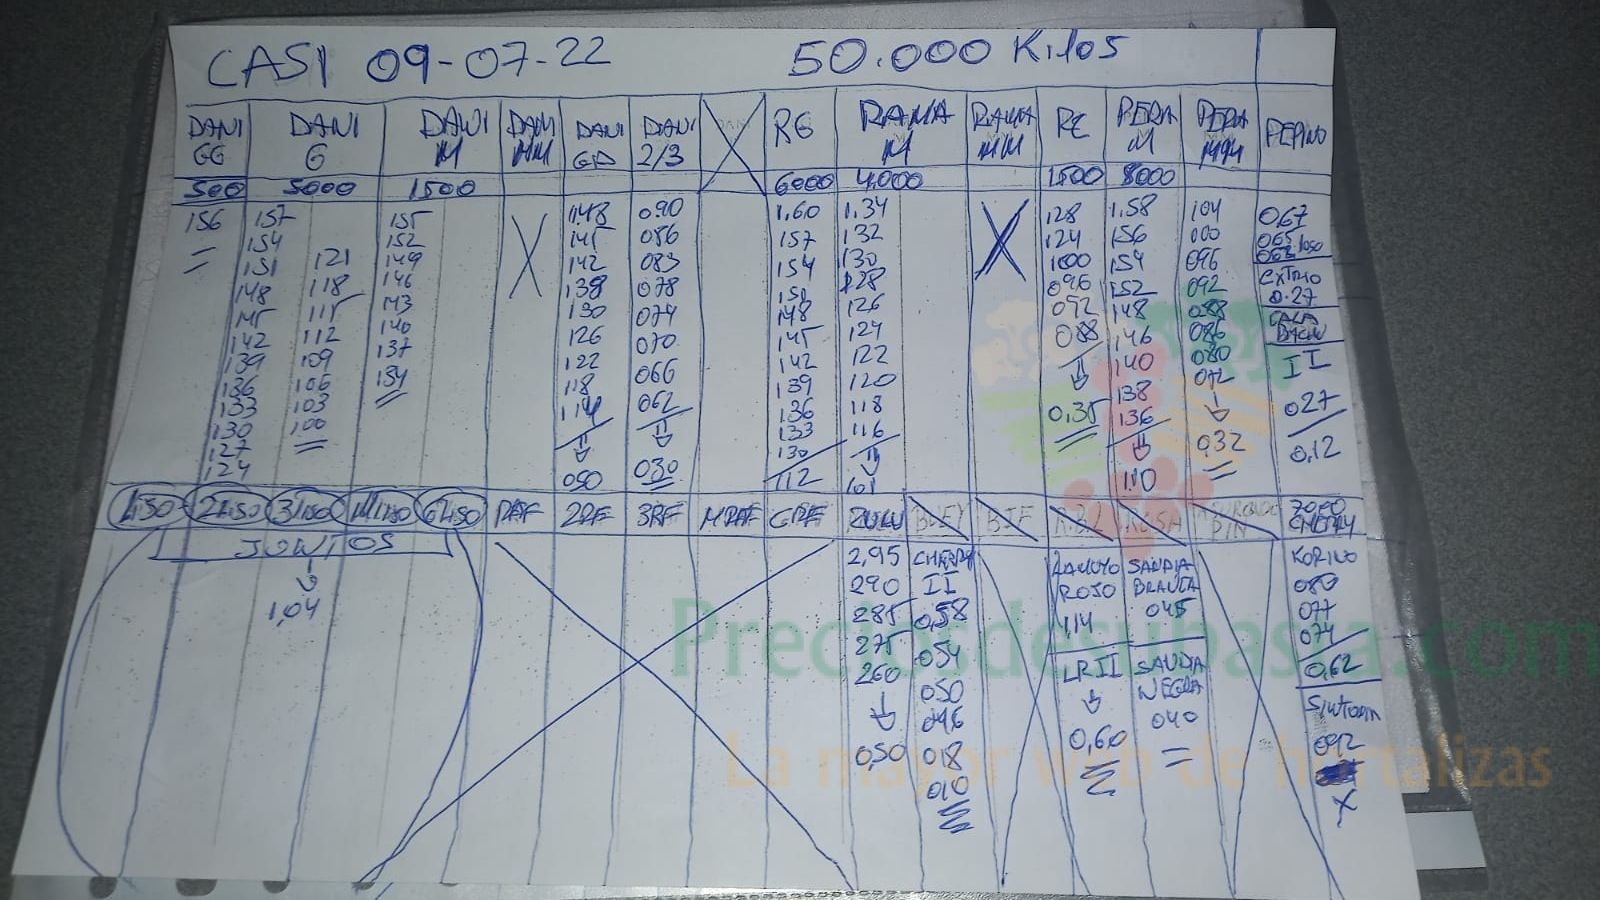 CASI 09-07-22 50.000 Kilos
DANI GG DANI G DANI M DANI MM DANI GD DANI 2/3 RG RAMA M RAMA MM RE PERA M PERA MM PEPINO
500 5000 1500 6000 4.000 1500 8000
156 157 155 1,48 090 1,60 1,34 128 1,58 104 067
154 152 145 086 157 132 124 156 000 065
151 121 149 142 083 154 130 100 154 096
148 118 146 138 078 151 128 096 152 092 0.27
145 115 143 130 074 148 126 092 148 088
142 112 140 126 070 145 124 088 146 086
139 109 137 122 066 142 122 140 080 II
136 106 134 118 062 139 120 138 072
133 103 114 136 118 0,35 136 027
130 100 133 116 0,32
127 130 0,12
124 050 030 112 101 110
1LISO 2LISO 3LISO 6LISO 2RF 3RF ZULU BIF ROSA CHERRY
JUNTOS
1,04
2,95 CHERRY RAMILLO SANDIA KORINO
290 II ROJO BLANCA 080
285 0,58 1,14 045 077
275 054 074
260 050 LRII SANDIA 0,62
046 NEGRA
0,50 018 0,60 040 092
010
Preciosdesubasta.com
La mayor web de hortalizas